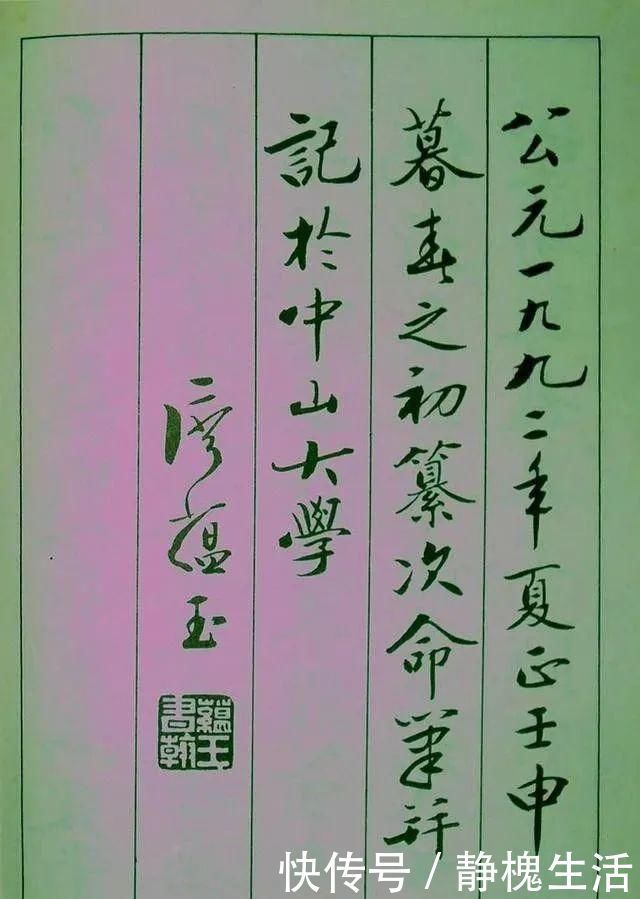 公元一九九二年夏正壬申
暮春之初纂次命筆並
記於中山大學
廖蘊玉
蘊玉書翰
快传号/静槐生活